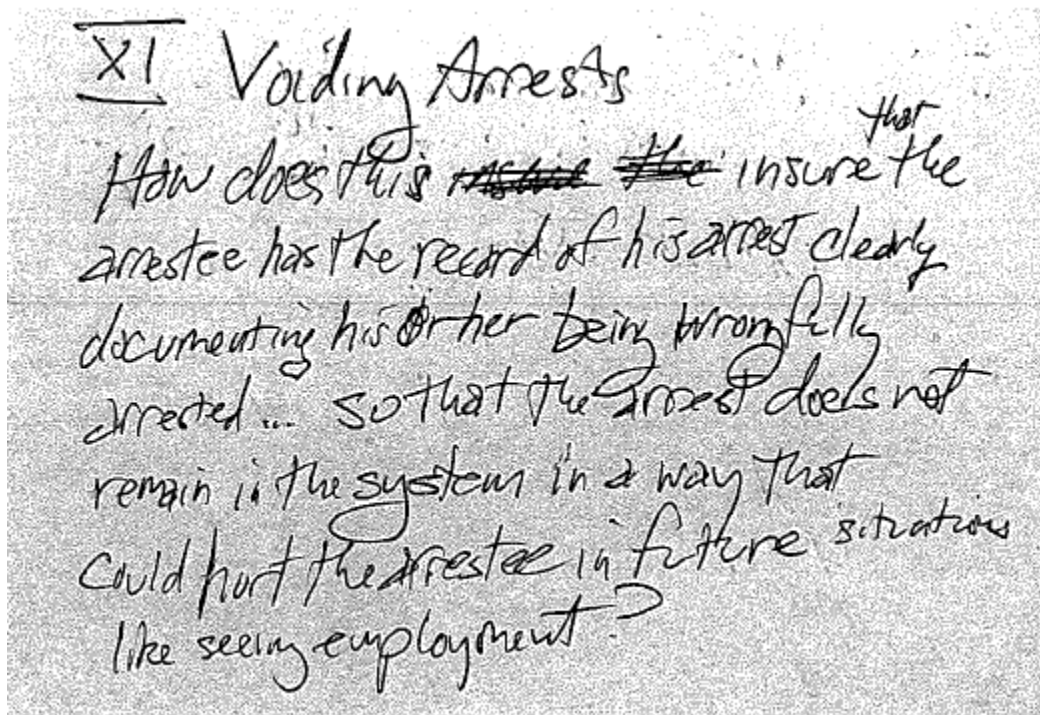 XI Voiding Arrests
that
How does this insure the
arrestee has the record of his arrest clearly
documenting his or her being wrongfully
arrested... so that the arrest does not
remain in the system in a way that
could hurt the arrestee in future situations
like seeing employment?